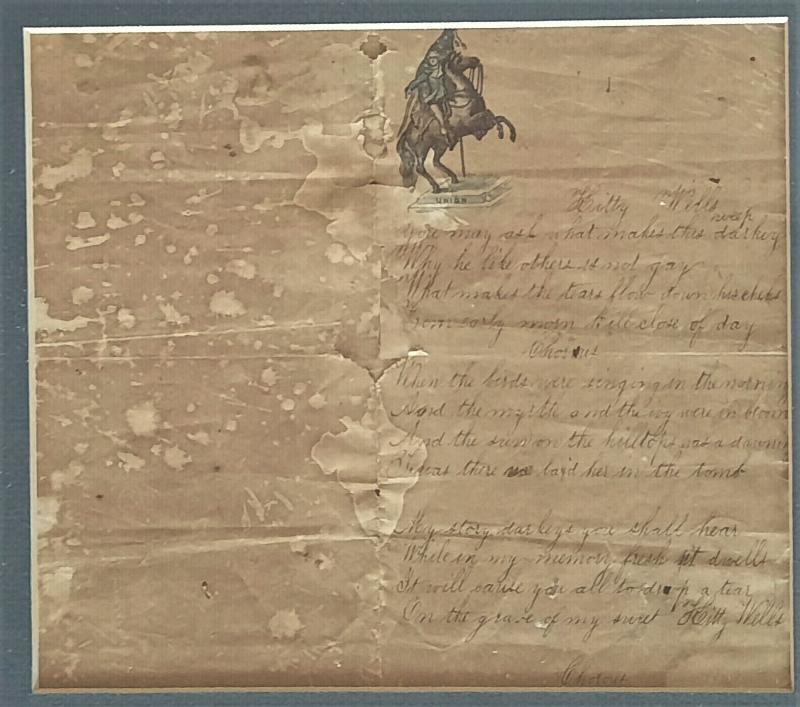 UNION
Kitty Wells
You may ask what makes this darkey weep
Why he like others is not gay
What makes the tears flow down his cheks
From early morn till close of day
Chorus
When the birds were singing in the mornin
And the myrtle and the ivy were in bloom
And the sun on the hilltops was a dawnin
It was there we laid her in the tomb
My story darkeys you shall hear
While in my memory fresh it dwells
It will cause you all to drop a tear
On the grave of my sweet Kitty Wells
Chorus